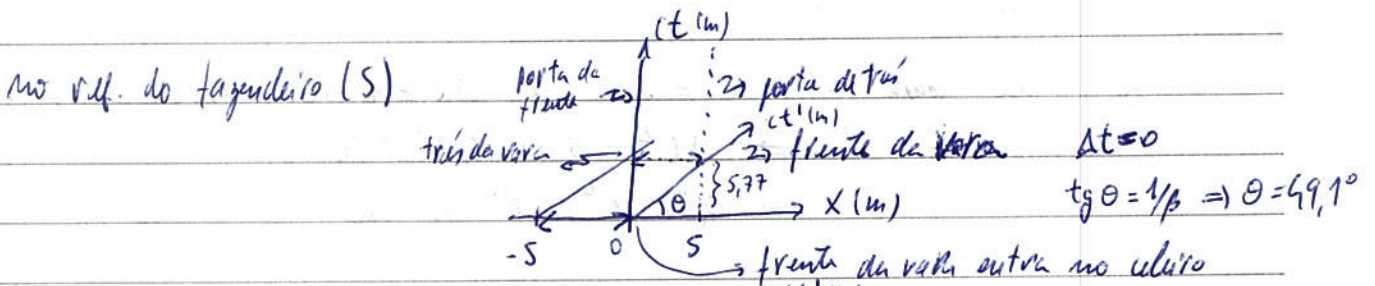 ct (m)
no ref. do fazendeiro (S)
porta da
frente
porta de trás
ct' (m)
trás da vara
frente da vara
Δt=0
5,77
tg θ = 1/β => θ = 49,1°
θ
x (m)
-5
0
5
frente da vara entra no celeiro